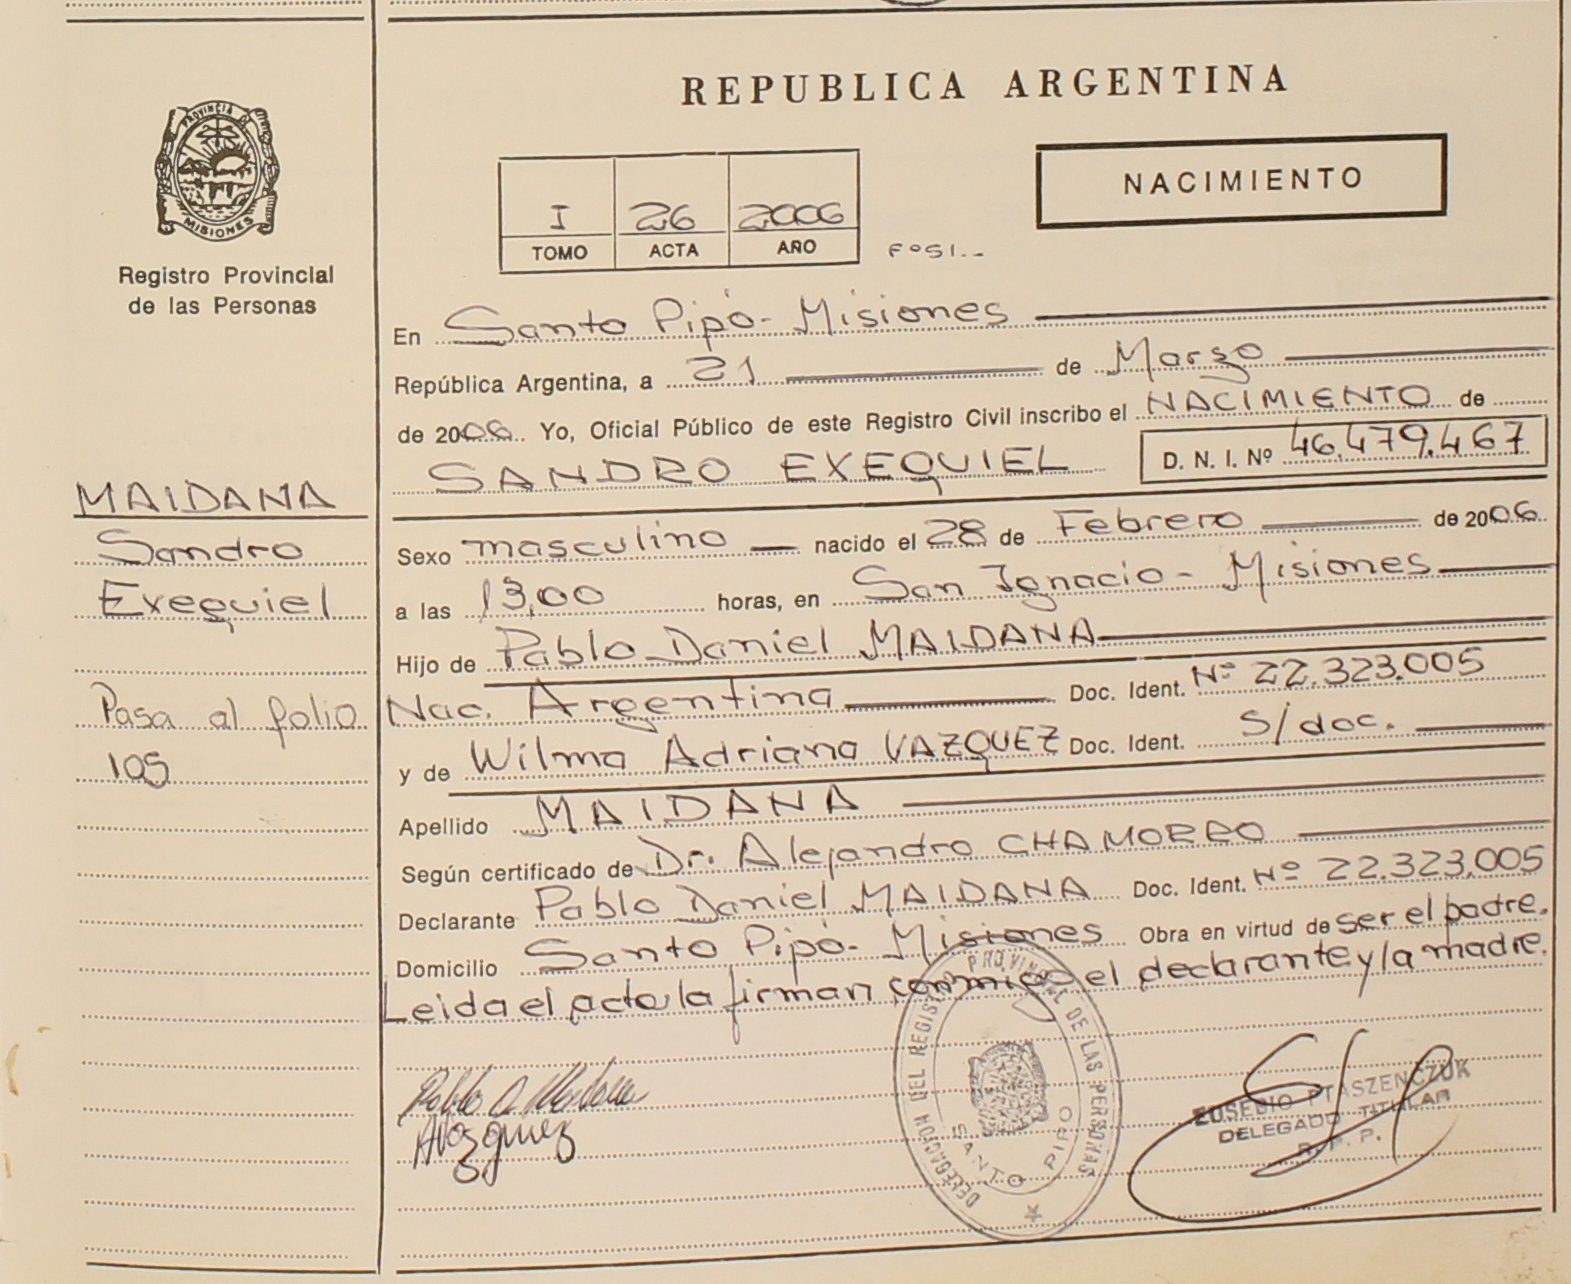 REPUBLICA ARGENTINA
PROVINCIA DE
MISIONES
Registro Provincial
de las Personas
NACIMIENTO
I 26 2006
TOMO ACTA AÑO
Fº51.-
En Santo Pipó- Misiones
República Argentina, a 21 de Marzo
de 2006. Yo, Oficial Público de este Registro Civil inscribo el NACIMIENTO de
SANDRO EXEQUIEL D. N. I. Nº 46.479.467
MAIDANA
Sandro
Exequiel
Pasa al folio
105
Sexo masculino nacido el 28 de Febrero de 2006
a las 13,00 horas, en San Ignacio - Misiones
Hijo de Pablo Daniel MAIDANA
Nac. Argentina Doc. Ident. Nº 22.323.005
y de Wilma Adriana VAZQUEZ Doc. Ident. S/doc.
Apellido MAIDANA
Según certificado de Dr. Alejandro CHAMORRO
Declarante Pablo Daniel MAIDANA Doc. Ident. Nº 22.323.005
Domicilio Santo Pipó- Misiones Obra en virtud de ser el padre.
Leida el acta la firman conmigo el declarante y la madre.
DELEGACION DEL REGISTRO PROVINCIAL DE LAS PERSONAS
SANTO PIPO
Pablo D Maidana
AVazquez
EUSEBIO PTASZENCZUK
DELEGADO TITULAR
R. P. P.